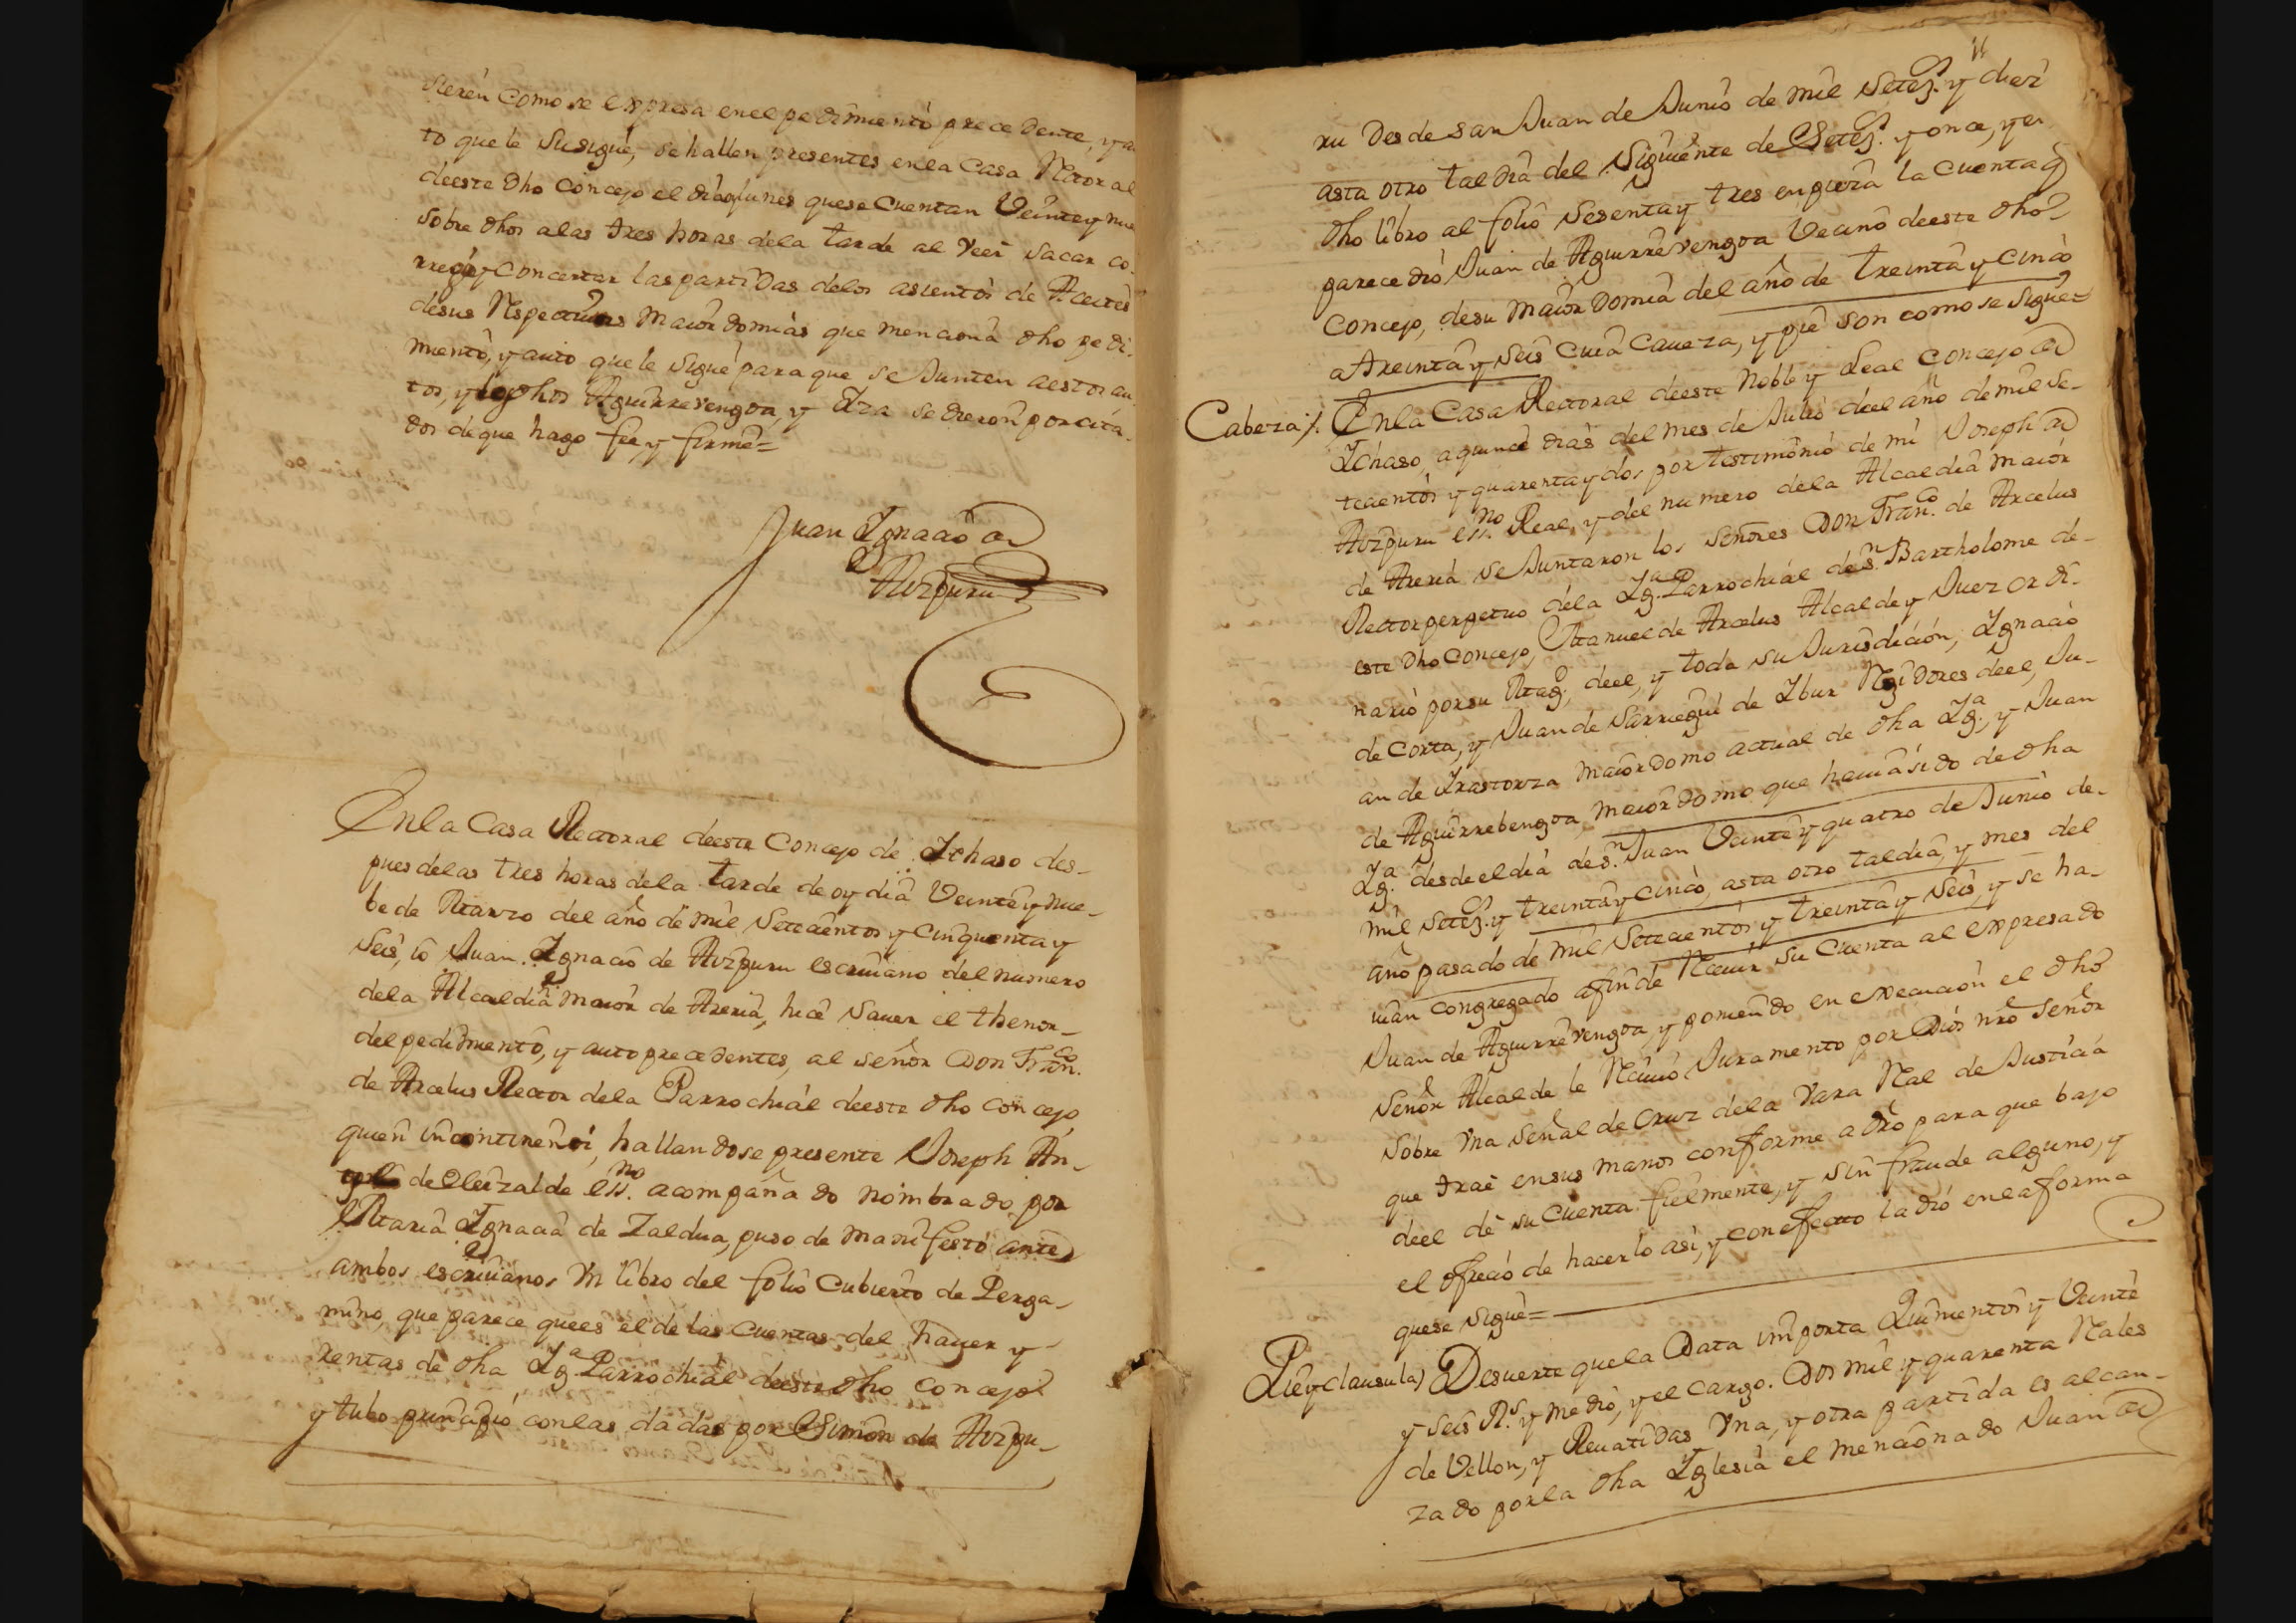 rieren como se expresa en el pedimiento precedente, y au
to que le susigue, se hallen presentes en la Casa Rectoral
deeste dho Concejo el dia lunes que se cuentan Veinte y nue
sobre dhos a las tres horas dela tarde al veer sacar co-
rregir y concertar las partidas delos asientos de Aceites
desus Respectivas Maiordomias que menciona dho pedi-
miento, y auto que le sigue para que se Junten aestos au-
tos, y los dhos Aguirrevengoa, y Eza se dieron por cita-
dos de que hago fee, y firme=
Juan Ignacio de
Aizpuru
En la Casa Rectoral deeste Concejo de Ichaso des-
pues delas tres horas dela tarde de oy dia Veinte y nue-
be de Marzo del año de mil Setecientos y cinquenta y
Seis, io Juan Ignacio de Aizpuru escrivano del numero
dela Alcaldia maior de Areria, hice saver el thenor-
del pedimiento, y auto precedentes, al señor Don Fran.co
de Arcelus Rector dela Parrochial deeste dho concejo,
quien incontinenti, hallandose presente Joseph An-
de Eleizalde ess.no acompañado nombrado por
Maria Ignacia de Zaldua, puso de manifesto ante
ambos escrivanos Vn libro del folio Cubierto de Perga-
mino, que parece quees el de las cuentas del haver y
rentas de dha Ig.a Parrochial deeste dho concejo
y tubo principio con las dadas por Simon de Aizpu-
11
ru desde san Juan de Junio de mil Setez.s y diez
asta otro tal dia del siguiente de Setez.s y once, y en
dho libro al folio sesenta y tres enpieza la cuenta q
parece dio Juan de Aguirrevengoa Vecino deeste dho
Concejo, desu maiordomia del año de treinta y cinco
a treinta y seis cuia caveza, y pie son como se sigue=
Cabeza/. En la Casa Rectoral deeste Noble y Leal Concejo de
Ichaso, a quince dias del mes de Julio deel año de mil se-
tecientos y quarenta y dos por testimonio de mi Joseph de
Aizpuru ess.no Real, y del numero dela Alcaldia maior
de Areria se Juntaron los señores Don Fran.co de Arcelus
Rector perpetuo dela Ig.a Parrochial de s.n Bartholome de-
este dho Concejo, Manuel de Arcelus Alcalde y Juez ordi-
nario por su Mag.d, deel, y toda su Jurisdicion, Ignacio
de Corta, y Juan de Sarriegui de Ibur Regidores deel, Ju-
an de Irastorza maiordomo actual de dha Ig.a, y Juan
de Aguirrebengoa, maiordomo que havia sido de dha
Ig.a desde el dia de s.n Juan Veinte y quatro de Junio de-
mil setez.s y treinta y cinco, asta otro tal dia, y mes del
año pasado de mil Setecientos y treinta y seis, y se ha-
vian congregado afin de Recivir su Cuenta al expresado
Juan de Aguirrevengoa, y poniendo en execucion el dho
señor Alcalde le Recivio Juramento por Dios nro señor
sobre Vna señal de Cruz dela Vara Real de Justicia
que trae en sus manos conforme a dro para que bajo
deel de su cuenta fielmente, y sin fraude alguno, y
el ofrecio de hacerlo asi, y con efecto la dio en la forma
que se sigue=
Pie y clausula) De suerte que la Data importa Quinientos y Veinte
y seis R.s y medio, y el cargo. Dos mil y quarenta Reales
de Vellon, y Revatidas Vna, y otra partida es alcan-
zado por la dha Iglesia el mencionado Juan de